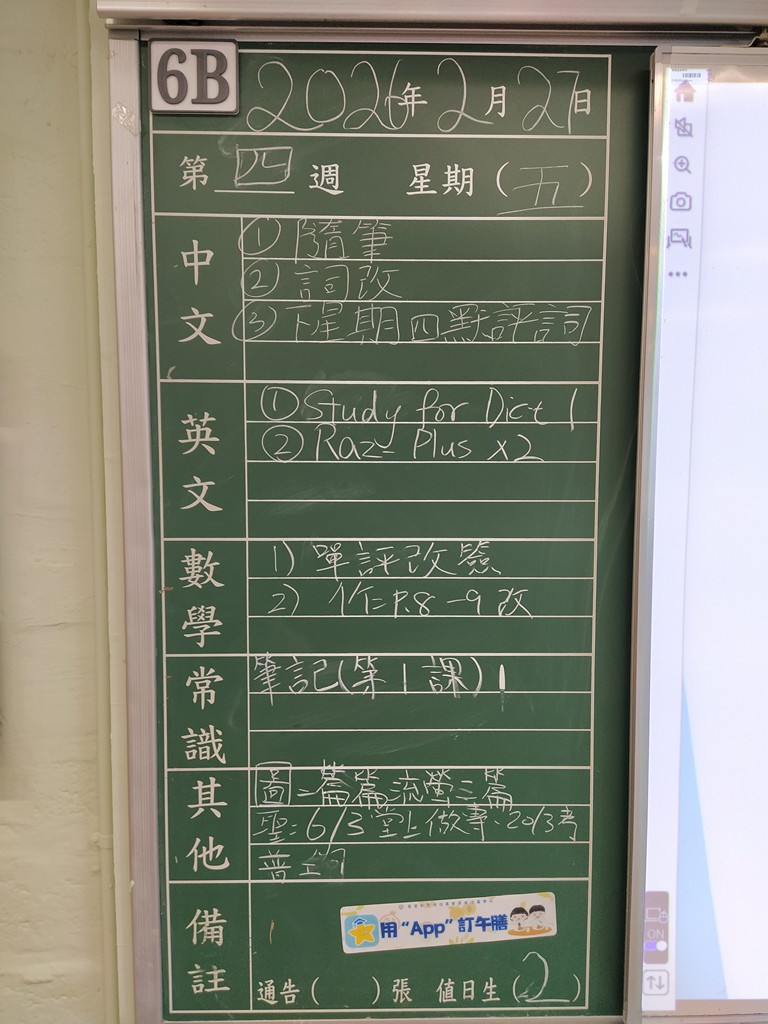 6B
2026年2月27日
第四週 星期(五)
中文
① 隨筆
② 詞改
③ 下星期四默評詞
英文
① Study for Dict 1
② Raz-Plus x2
數學
1) 單評改簽
2) 作二P.8-9改
常識
筆記(第1課)
其他
圖=篇篇流螢三篇
聖:6/3堂上做事、20/3考
普
備註
用“App”訂午膳
通告( )張 值日生(2)